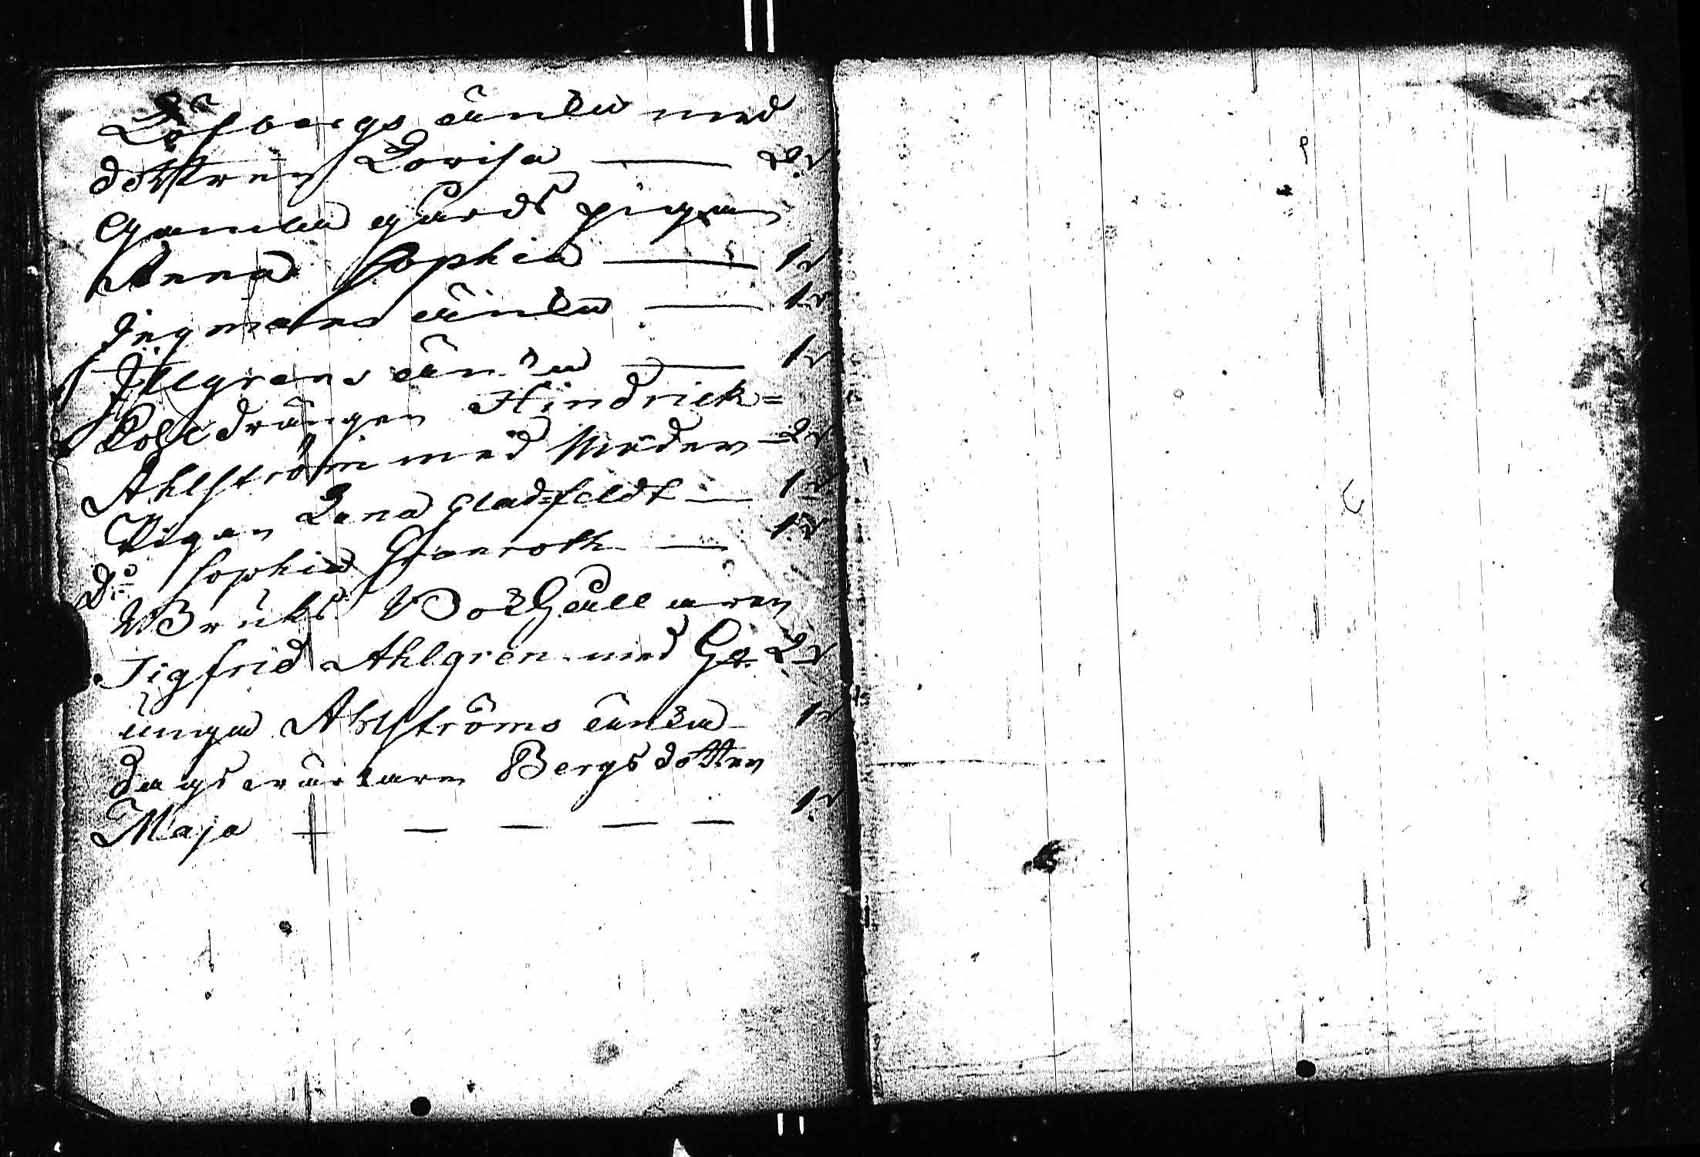 Löfbergs äncka med
dottren Lovisa — 2 r
Gamla gårds pigan
Anna Sophia — 1 r
Jngmans äncka — 1 r
Jllgrens äncka — 1 r
Kohldrängen Hindrick=
Ahlström med Moder — 2 r
Pigan Lena Gladfeldt — 1 r
D:o Sophia Granroth — 1 r
Bruks Bokhållaren
Sigfrid Ahlgren med 2 r
unga Ahlströms äncka 1 r
dagsvärkaren Bergs dotter
Maja — — — — — 1 r